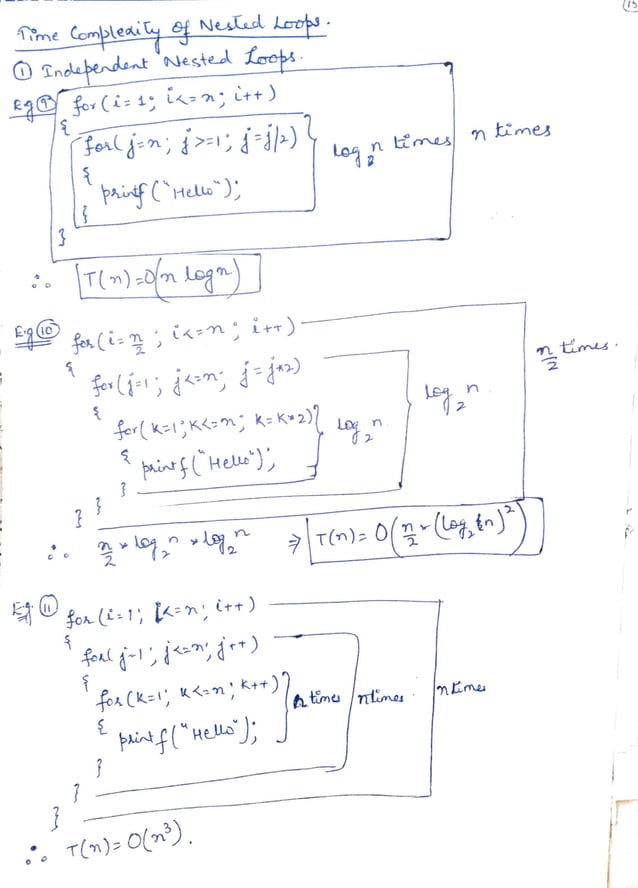 13
Time Complexity Of Nested Loops.
① Independent Nested Loops.
Eg ⑨ for(i=1; i<=n; i++)
{
for(j=n; j>=1; j=j/2)
{
printf("Hello");
}
}
log₂n times
n times
∴ T(n)=O(n logn)
Eg ⑩ for(i=n/2; i<=n; i++)
{
for(j=1; j<=n; j=j*2)
{
for(k=1; k<=n; k=k*2)
{
printf("Hello");
}
}
}
log₂n
log₂n
n/2 times.
∴ n/2 * log₂n * log₂n ⇒ T(n)= O(n/2 * (log₂n)²)
Eg ⑪ for(i=1; i<=n; i++)
{
for(j=1; j<=n; j++)
{
for(k=1; k<=n; k++)
{
printf("Hello");
}
}
}
n times
n times.
n times
∴ T(n)= O(n³).